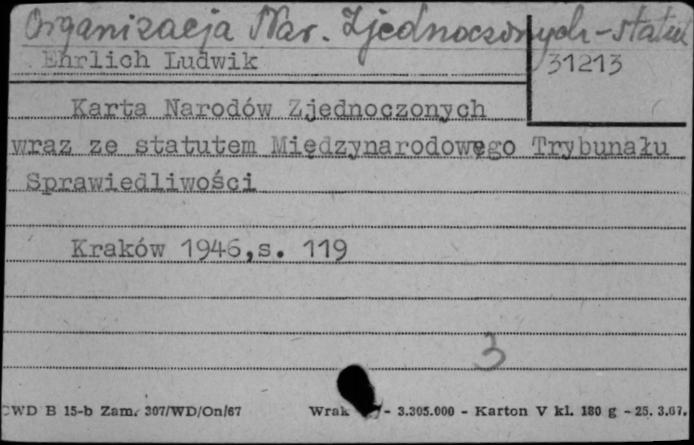 Organizacja Nar. Zjednoczonych - statut
Ehrlich Ludwik
31213
Karta Narodów Zjednoczonych
wraz ze statutem Międzynarodowego Trybunału
Sprawiedliwości
Kraków 1946,s. 119
3
CWD B 15-b Zam. 307/WD/On/67 Wrak - 3.305.000 - Karton V kl. 180 g - 25. 3.67.